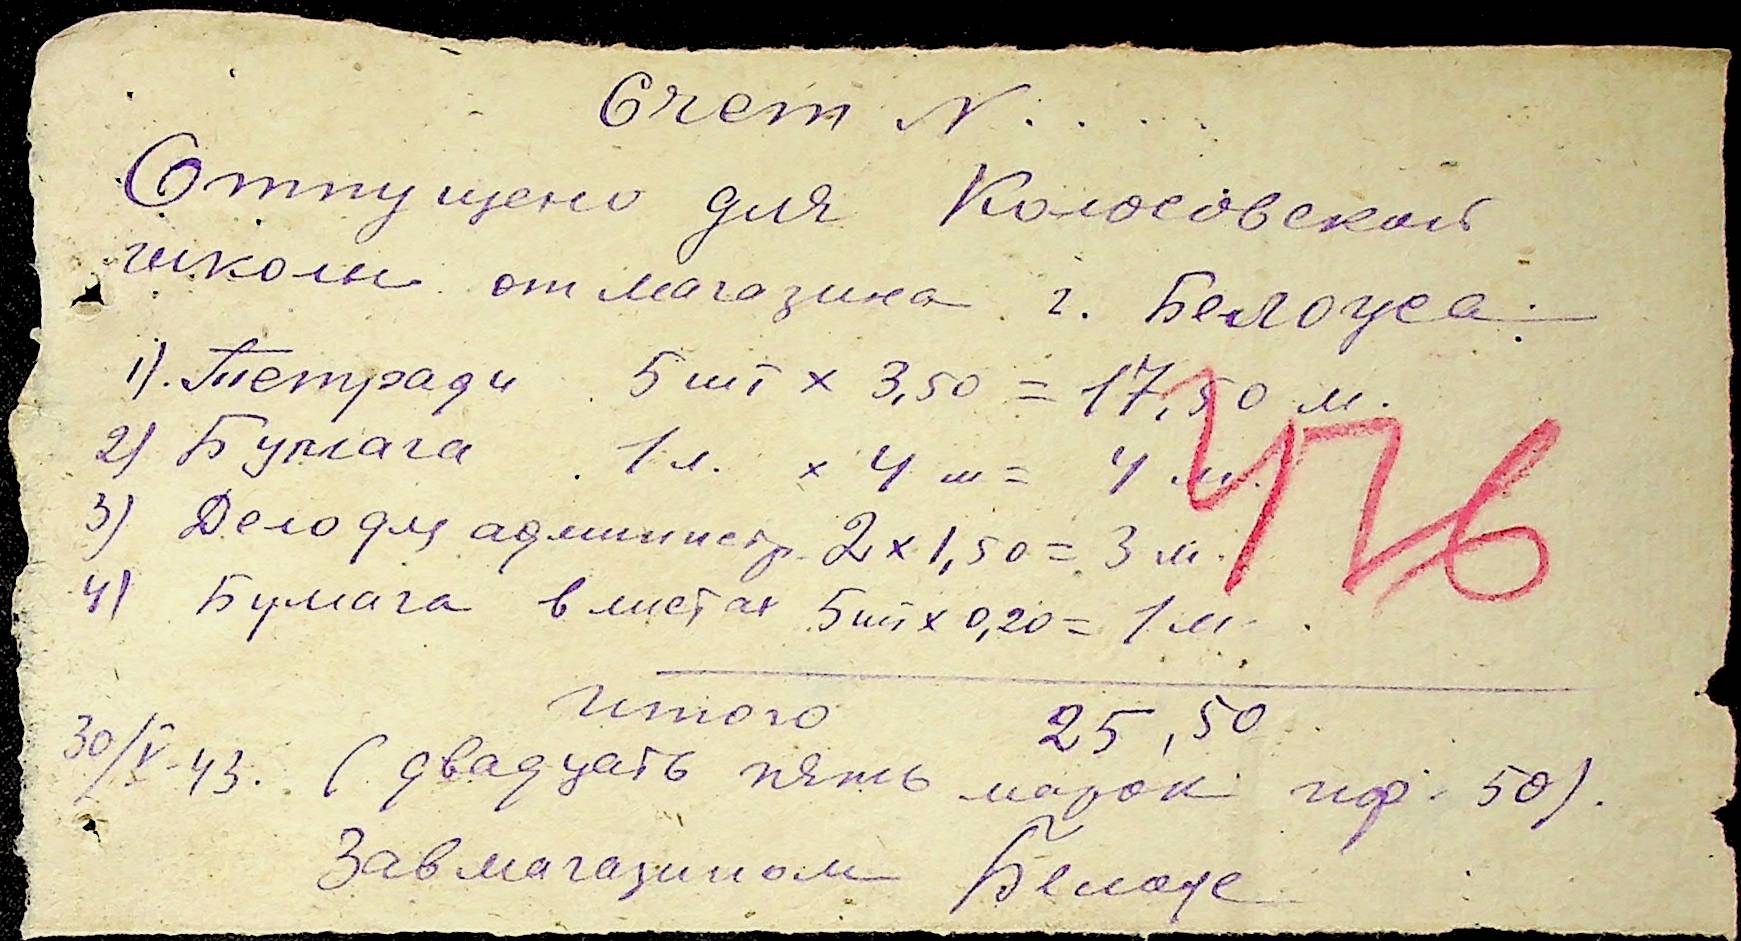 Счет N.....
Отпущено для Колосовской
школы от магазина г. Белоуса.
1). Тетради 5 шт х 3,50 = 17,50 м.
2) Бумага 1 л. х 4 м = 4 м.
3) Дело для администр. 2 х 1,50 = 3 м.
4) Бумага в листах 5 шт х 0,20 = 1 м.
Итого 25,50
30/V-43. (двадцать пять марок пф. 50).
Завмагазином Белоус